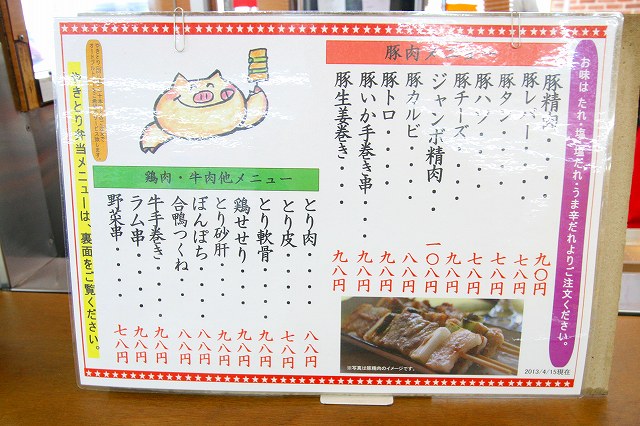 お味は たれ・塩・塩だれ・うま辛だれよりご注文ください。
豚肉メニュー
豚精肉・・・九〇円
豚レバー・・・七八円
豚タン・・・・七八円
豚ハツ・・・・七八円
豚チーズ・・・九八円
ジャンボ精肉・・一〇八円
豚カルビ・・・八八円
豚トロ・・・・九八円
豚いか手巻き串・九八円
豚生姜巻き・・・九八円
鶏肉・牛肉他メニュー
とり肉・・・・八八円
とり皮・・・・七八円
とり軟骨・・・九八円
鶏せせり・・・九八円
とり砂肝・・・九八円
ぼんぽち・・・八八円
合鴨つくね・・八八円
牛手巻き・・・九八円
ラム串・・・・九八円
野菜串・・・・七八円
やきとり弁当メニューは、裏面をご覧ください。
※写真は豚精肉のイメージです。
2013/4/15現在